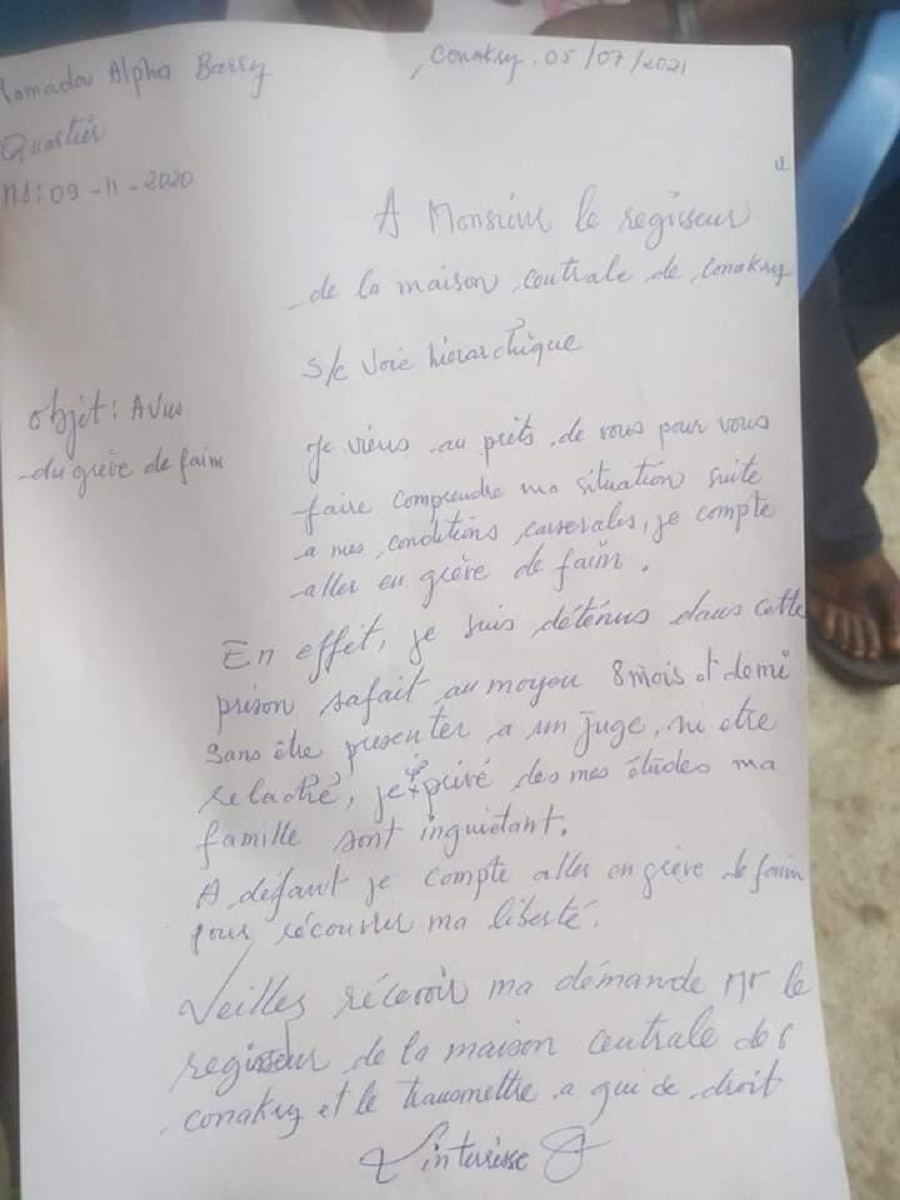 Mamadou Alpha Barry
Conakry, 05/07/2021
Quartier
Md: 09-11-2020
A Monsieur le regisseur
de la maison centrale de Conakry
S/c Voie hierarchique
objèt: Avus
du grève de faim
Je viens au prèts de vous pour vous
faire comprendre ma situation suite
a mes conditions carserales, je compte
aller en grève de faim.
En effét, je suis déténus dans cette
prison safait au moyen 8 mois et demi
sans être presenter a un juge, ni etre
relaché, je privé des mes études ma
famille sont inquiètant.
A défaut je compte aller en grève de faim
pour récouvrir ma liberté.
Veilles récevoir ma démande Mr le
regisseur de la maison centrale de
conakry et le transmettre a qui de droit
L'interèsse